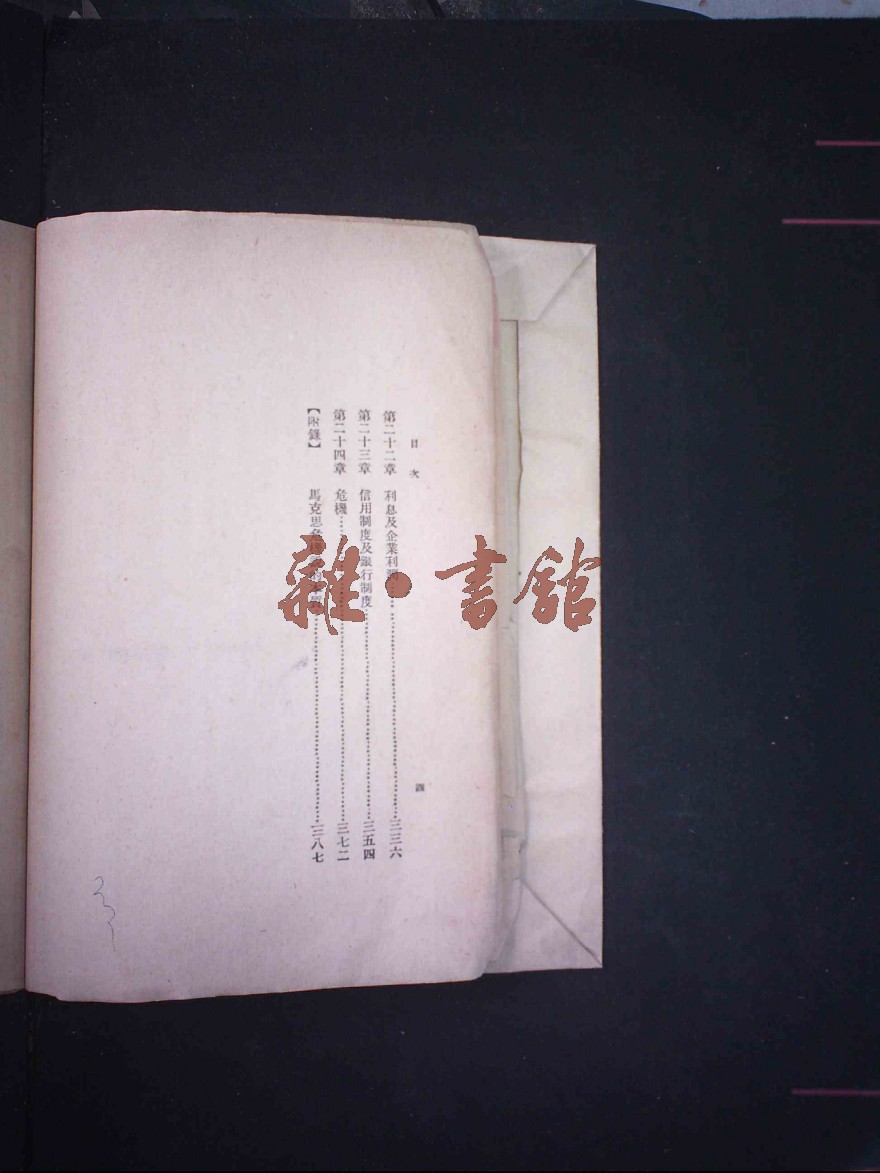 目次
四
第二十二章 利息及企業利潤……三三六
第二十三章 信用制度及銀行制度……三五四
第二十四章 危機……三七二
【附錄】 馬克思危機……三八七
雜·書館